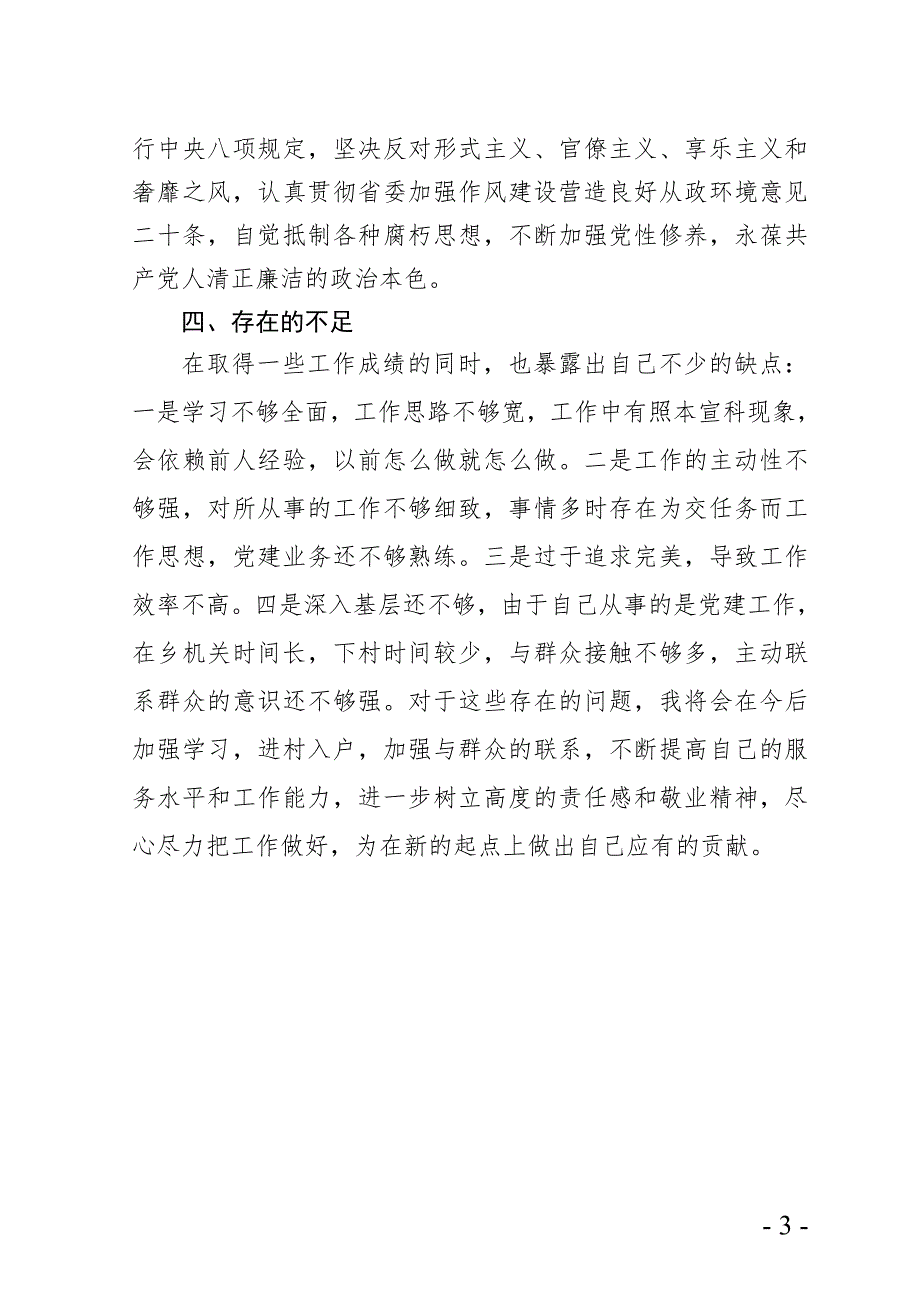 行中央八项规定，坚决反对形式主义、官僚主义、享乐主义和
奢靡之风，认真贯彻省委加强作风建设营造良好从政环境意见
二十条，自觉抵制各种腐朽思想，不断加强党性修养，永葆共
产党人清正廉洁的政治本色。
四、存在的不足
在取得一些工作成绩的同时，也暴露出自己不少的缺点：
一是学习不够全面，工作思路不够宽，工作中有照本宣科现象，
会依赖前人经验，以前怎么做就怎么做。二是工作的主动性不
够强，对所从事的工作不够细致，事情多时存在为交任务而工
作思想，党建业务还不够熟练。三是过于追求完美，导致工作
效率不高。四是深入基层还不够，由于自己从事的是党建工作，
在乡机关时间长，下村时间较少，与群众接触不够多，主动联
系群众的意识还不够强。对于这些存在的问题，我将会在今后
加强学习，进村入户，加强与群众的联系，不断提高自己的服
务水平和工作能力，进一步树立高度的责任感和敬业精神，尽
心尽力把工作做好，为在新的起点上做出自己应有的贡献。
- 3 -